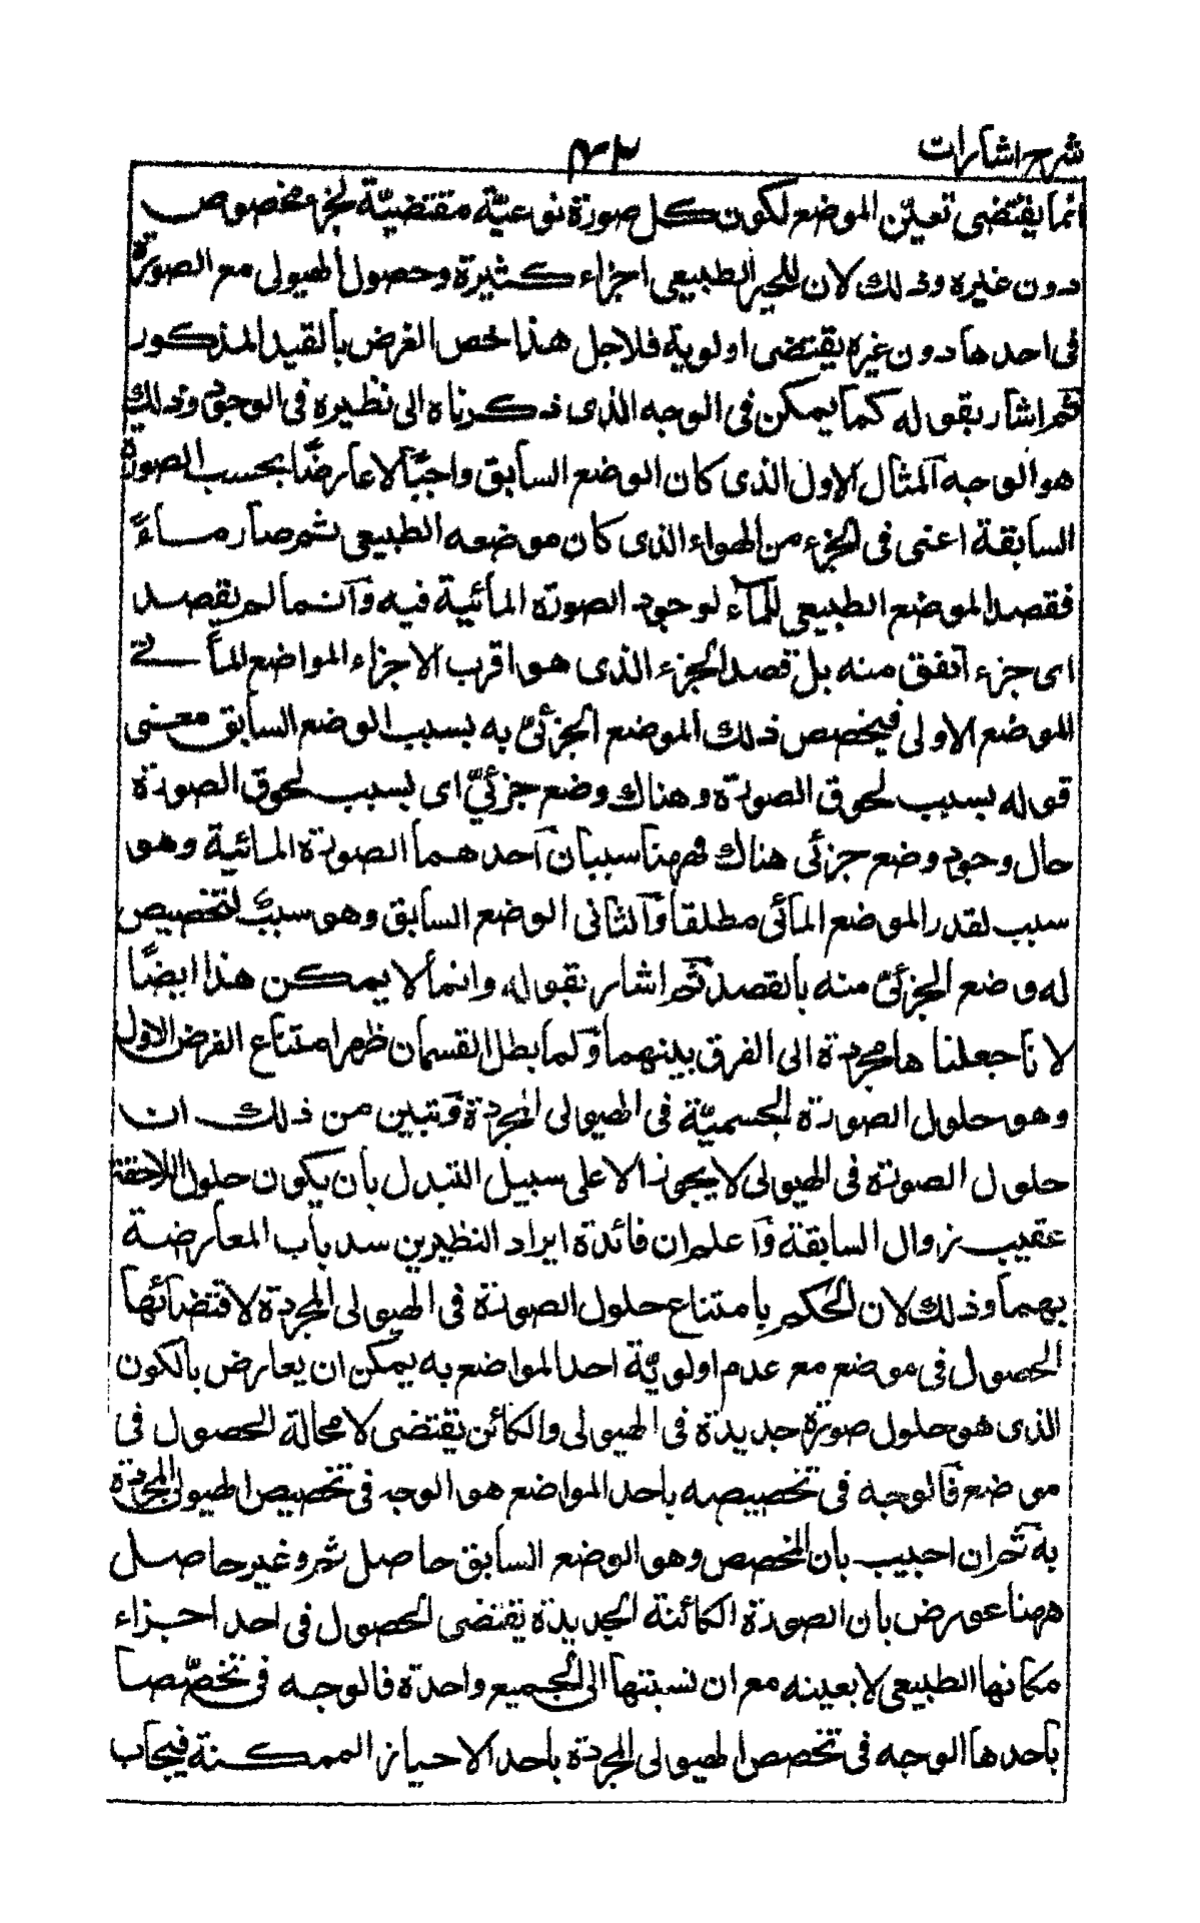 شرح اشارات
٤٢
انما يقتضى تعيّن الموضع لكون كل صورة نوعيّة مقتضيّة لجزء مخصوص
دون غيره وذلك لان للحيز الطبيعى اجزاء كثيرة وحصول الهيولى مع الصورة
فى احدها دون غيره يقتضى اولوية فلاجل هذا خص الغرض بالقيد المذكور
ثم اشار بقوله كما يمكن فى الوجه الذى ذكرناه الى نظيره فى الوجود وذلك
هو الوجه المثال الاول الذى كان الوضع السابق واجبًا لا عارضًا بحسب الصورة
السابقة اعنى فى الجزء من الهواء الذى كان موضعه الطبيعى ثم صار ماءً
فقصد الموضع الطبيعى للماء لوجود الصورة المائية فيه وانما لم يقصد
اى جزء اتفق منه بل قصد الجزء الذى هو اقرب الاجزاء المواضع المائى
الموضع الاولى فيخصص ذلك الموضع الجزئى به بسبب الوضع السابق معنى
قوله بسبب لحوق الصورة وهناك وضع جزئىّ اى بسبب لحوق الصورة
حال وجود وضع جزئى هناك فههنا سببان احدهما الصورة المائية وهو
سبب لقدر الموضع المائى مطلقا والثانى الوضع السابق وهو سبب لتخصيص
له وضع الجزئى منه بالقصد ثم اشار بقوله وانما لا يمكن هذا ايضًا
لانا جعلنا ها مجردة الى الفرق بينهما ولما بطل القسمان ظهر امتناع الفرض الاول
وهو حلول الصورة الجسميّة فى الهيولى المجردة وتبين من ذلك ان
حلول الصورة فى الهيولى لا يجوز الا على سبيل التبدل بان يكون حلول اللاحقة
عقيب زوال السابقة واعلم ان فائدة ايراد النظيرين سد باب المعارضة
بهما وذلك لان الحكم بامتناع حلول الصورة فى الهيولى المجردة لاقتضائها
الحصول فى موضع مع عدم اولويّة احد المواضع به يمكن ان يعارض بالكون
الذى هو حلول صورة جديدة فى الهيولى والكائن يقتضى لا محالة الحصول فى
موضع فالوجه فى تخصيصه باحد المواضع هو الوجه فى تخصيص الهيولى المجردة
به ثم ان اجيب بان المخصص وهو الوضع السابق حاصل ثم وغير حاصل
ههنا عورض بان الصورة الكائنة الجديدة يقتضى الحصول فى احد اجزاء
مكانها الطبيعى لا بعينه مع ان نسبتها الى الجميع واحدة فالوجه فى تخصّصها
باحدها الوجه فى تخصص الهيولى المجردة باحد الاحياز الممكنة فيجاب